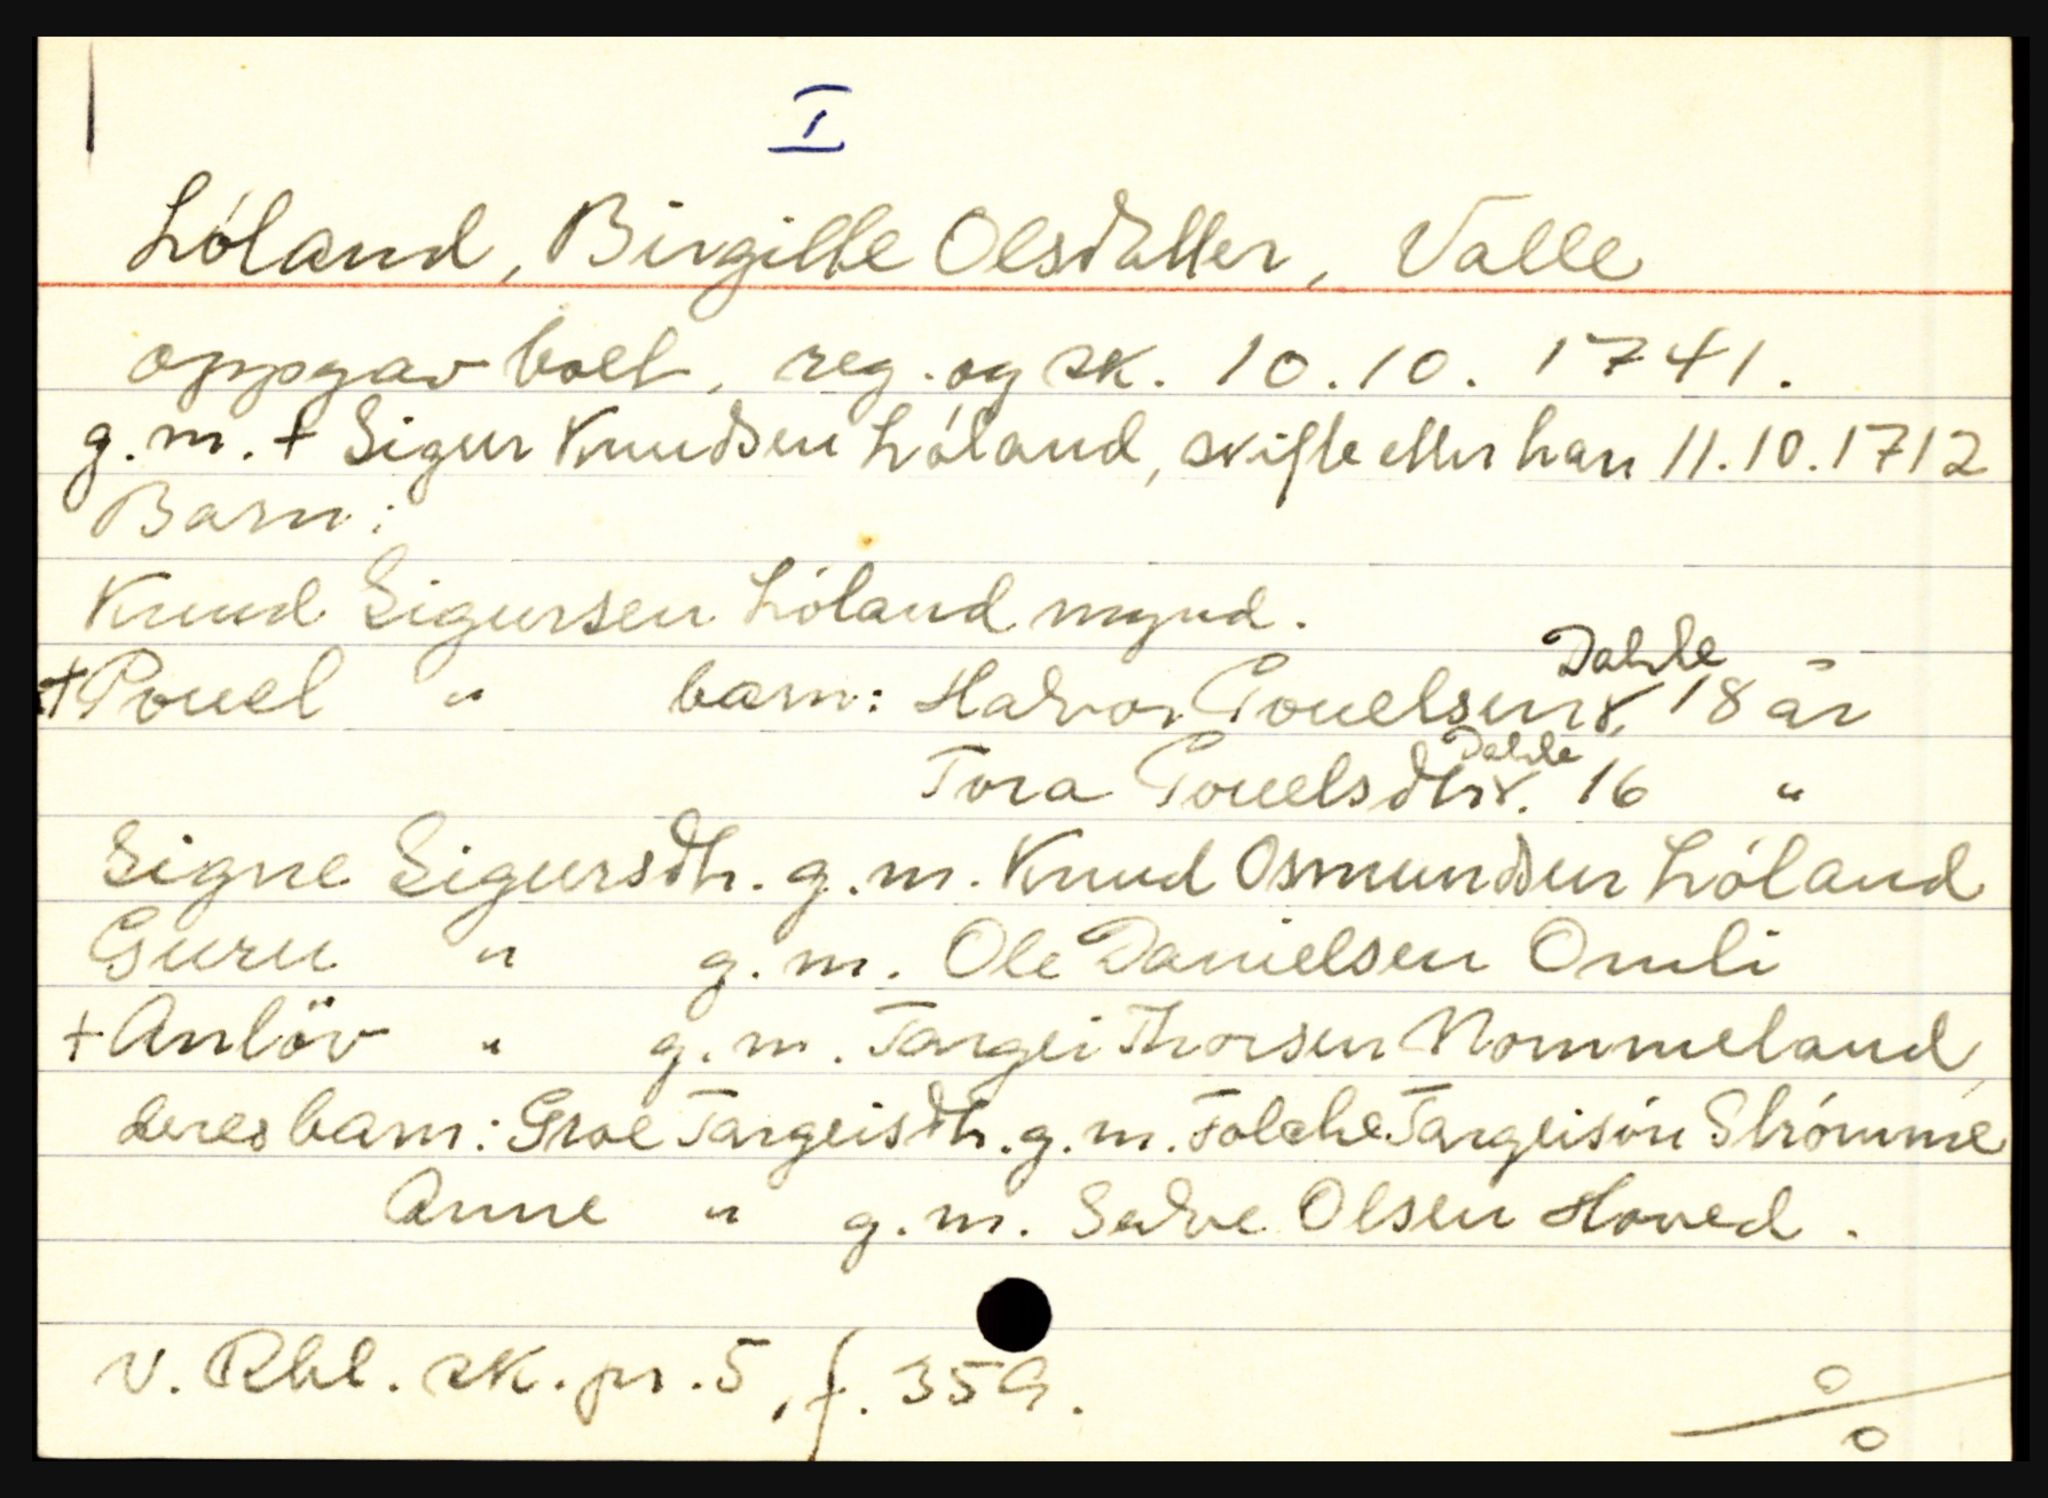 I
Lóland, Birgitte Olsdatter, Valle
oppgav boet, reg. og sk. 10.10.1741.
g.m. + Sigur Knudsen Lóland, skifte etter han 11.10.1712
Barn:
Knud Sigursen Lóland mynd.
+Pouel " barn: Halvor Pouelsen Dahle 18 år
Tora Pouelsdtr. Dahle 16 "
Signe Sigursdtr. g.m. Knud Osmundsen Lóland
Guru " g.m. Ole Danielsen Omli
+Anlöv " g.m. Targei Thorsen Nommeland,
deres barn: Groe Targeisdtr. g.m. Folche Targeisón Strómme
Anne " g.m. Salve Olsen Hoved.
v. Rbl. sk. pr. 5, f. 359.
0/0